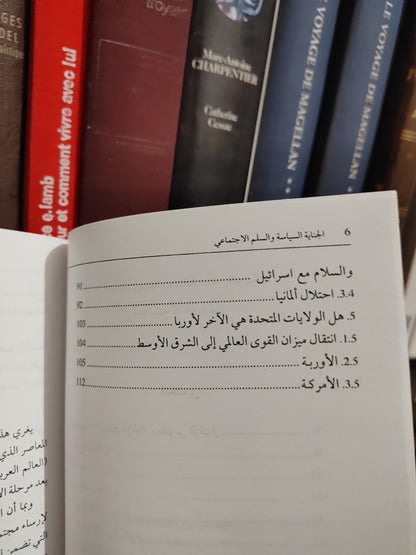 GES
DEL
e e.lamb
ur et comment vivre avec lui
Marc-Antoine
CHARPENTIER
Catherine
Cessac
LE VOYAGE DE MAGELLAN
LE VOYAGE DE MAGELLAN
6 الجناية السياسة والسلم الاجتماعي
والسلام مع اسرائيل ... 91
3.4. احتلال ألمانيا ... 92
5. هل الولايات المتحدة هي الآخر لأوربا ... 103
1.5. انتقال ميزان القوى العالمي إلى الشرق الأوسط ... 104
2.5. الأوربة ... 105
3.5. الأمركة ... 112
يغري هذ
المعاصر الذي
(العالم العرب
بعد مرحلة الا
وبما أن ا
لإرساء مجتم
التي تضمن ا